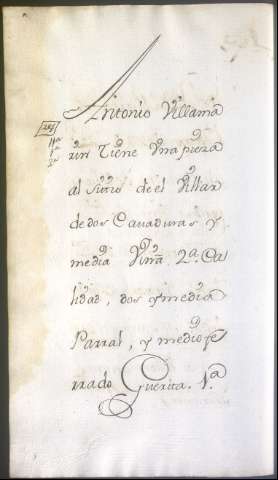 Antonio Villama
rin Tiene Vna pieza
al sitio de el Villar
de dos Cavaduras y
media Viña 2ª. Ca
lidad, dos y media
Parral, y medio fe
rrado Guerita. 1ª